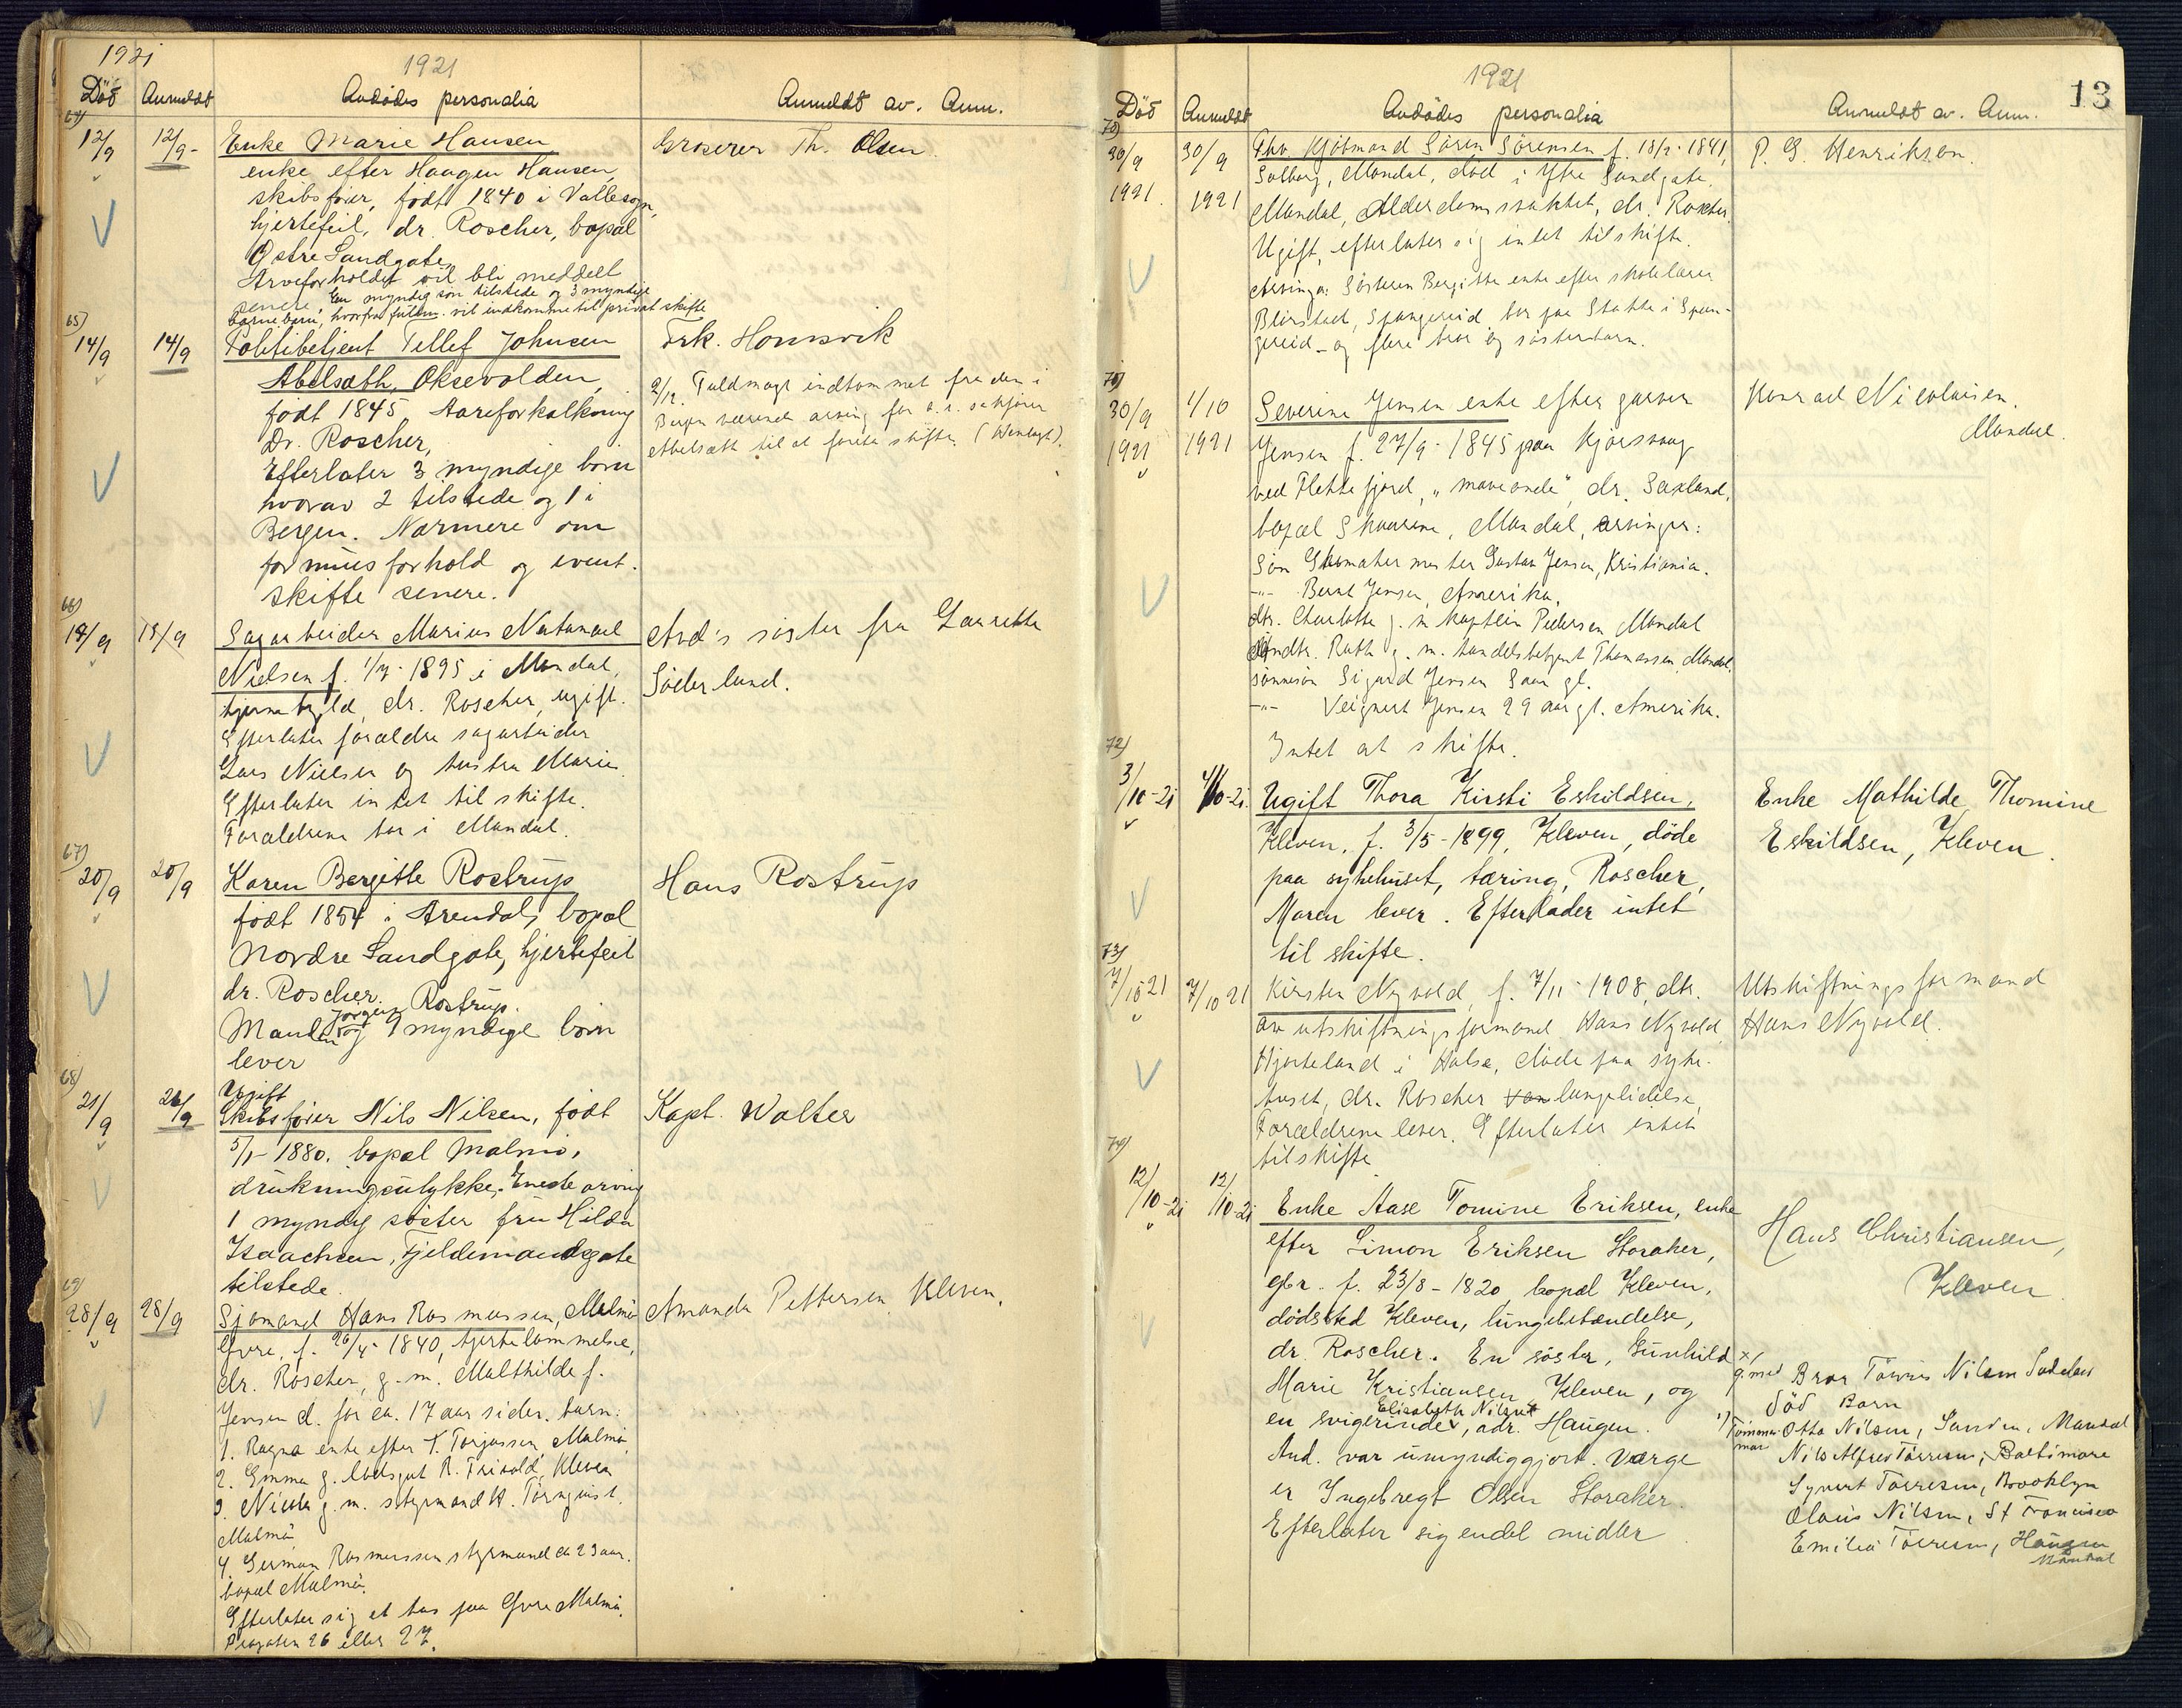 1921
1921
Död Anmeldt Avdödes personalia Anmeldt av. Anm.
64)
12/9 12/9- Enke Marie Hansen Grosserer Th. Olsen.
enke efter Haagen Hansen,
skibsfører, født 1840 i Vallesogn,
hjertefeil, dr. Roscher, bopæl
Østre Sandgate.
Arveforholdet vil bli meddelt
senere. En myndig søn tilstede og 3 myndige
barnebarn, hvorfra fuldm. vil indkomme til privat skifte
65)
14/9 14/9 Politibetjent Tellef Johnsen Frk. Homsvik
Abelsæth, Oksevolden,
født 1845, Aareforkalkning
Dr. Roscher,
Efterlater 3 myndige børn
hvorav 2 tilstede og 1 i
Bergen. Nærmere om
formuesforhold og event.
skifte senere.
2/12. Fuldmagt indkommet fra den i
Bergen værende arving for o.r. sakfører
Abelsæth til at foreta skifte. (Henlagt).
66)
18/9 19/9 Sagarbeider Marius Natanael Avd's søster fru Laurette
Nielsen f. 1/7- 1895 i Mandal, Söderlund.
hjernebyld, dr. Roscher, ugift.
Efterlater forældre sagarbeider
Lars Nielsen og hustru Marie.
Efterlater intet til skifte.
Forældrene bor i Mandal.
67)
20/9 20/9 Karen Bergitte Rostrup Hans Rostrup
født 1854 i Arendal, bopæl
Nordre Sandgate, hjertefeil
dr. Roscher.
Jørgen Rostrup.
Manden og 9 myndige børn
lever
68)
Ugift
21/9 26/9 Skibsfører Nils Nilsen, født Kapt. Walter
5/1- 1880. bopæl Malmø,
drukningsulykke. Eneste arving
1 myndig søster fru Hilda
Isaachsen, Fjeldemandsgate
tilstede.
69)
28/9 28/9 Sjømand Hans Rasmussen, Malmø Amanda Pettersen Kleven.
Øvre, f. 26/4- 1840, hjertelammelse,
dr. Roscher, g.m. Malthilde f.
Jensen d. for ca. 17 aar siden. barn:
1. Ragna enke efter T. Torjussen, Malmø,
2. Emma g. R. Frivold, Kleven
3. g.m. styrmand H. Törnqvist,
Malmø
4. German Rasmussen styrmand ca 23 aar.
bopæl Malmø.
Efterlater sig et hus paa Øvre Malmø.
26 eller 27.
1921
13
Död Anmeldt Avdödes personalia Anmeldt av. Anm.
70)
30/9 30/9 Fhv. Kjøbmand Søren Sørensen f. 18/2- 1841, P. G. Henriksen.
1921. 1921 Solberg, Mandal, død i Ytre Sandgate.
Mandal, Alderdomssvakhet, dr. Roscher.
Ugift, efterlater sig intet til skifte.
Arvinger: Søsteren Bergitte enke efter skolelærer
Blørstad, Spangereid bor paa Stokke i Span-
gereid - og flere bror og søsterbarn.
71)
30/9 1/10 Severine Jensen enke efter garver Konrad Nicolaisen.
1921 1921 Jensen f. 27/9- 1845 paa Kjørsvaag Mandal.
ved Flekkefjord, "maveonde" dr. Saxlund,
bopæl Skaarene, Mandal, arvinger:
Søn Skomakermester Gustav Jensen, Kristiania.
-"- Bernt Jensen, Amerika,
dtr. Charlotte g.m. kaptein Pedersen Mandal
Søndtr. Ruth g.m. handelsbetjent Thomassen, Mandal.
sønnesøn Sigurd Jensen gl.
-"- Jensen 29 aar gl. Amerika.
Intet at skifte.
72)
3/10-21 4/10-21. Ugift Thora Kirsti Eskildsen, Enke Mathilde Thomine
Kleven, f. 3/5- 1899, Kleven, døde Eskildsen, Kleven.
paa sykehuset, tæring, Roscher,
Moren lever. Efterlader intet
til skifte.
73)
7/10 21 7/10 21 Kirsten Nyvold, f. 7/11- 1908, dtr. Utskiftningsformand
av utskiftningsformand Hans Nyvold, Hans Nyvold.
Hjorteland i Halse, døde paa syke-
huset, dr. Roscher lungelidelse,
Forældrene lever. Efterlater intet
til skifte
74)
12/10-21 12/10-21 Enke Aase Tomine Eriksen, enke
efter Simon Eriksen Storaker, Hans Christiansen,
gbr. f. 23/8- 1820 bopæl Kleven, Kleven.
dødsted Kleven, lungebetændelse,
dr. Roscher. En søster, Gunhild x)
Marie Kristiansen Kleven, og
Elisabeth Nilsen
en svigerinde, adr. Haugen.
Avd. var umyndiggjort. Værge
er Ingebregt Olsen Storaker.
Efterlater sig endel midler
g. med Bror Tørres Nilsen
død Barn
1) Tømmermar Otto Nilsen, Sanden, Mandal
Nils Alfred Tørresen, Baltimore
Syvert Tørresen, Brooklyn
Olaus Nilsen, St Francisco
Emilia Tørresen, Haugen
Mandal